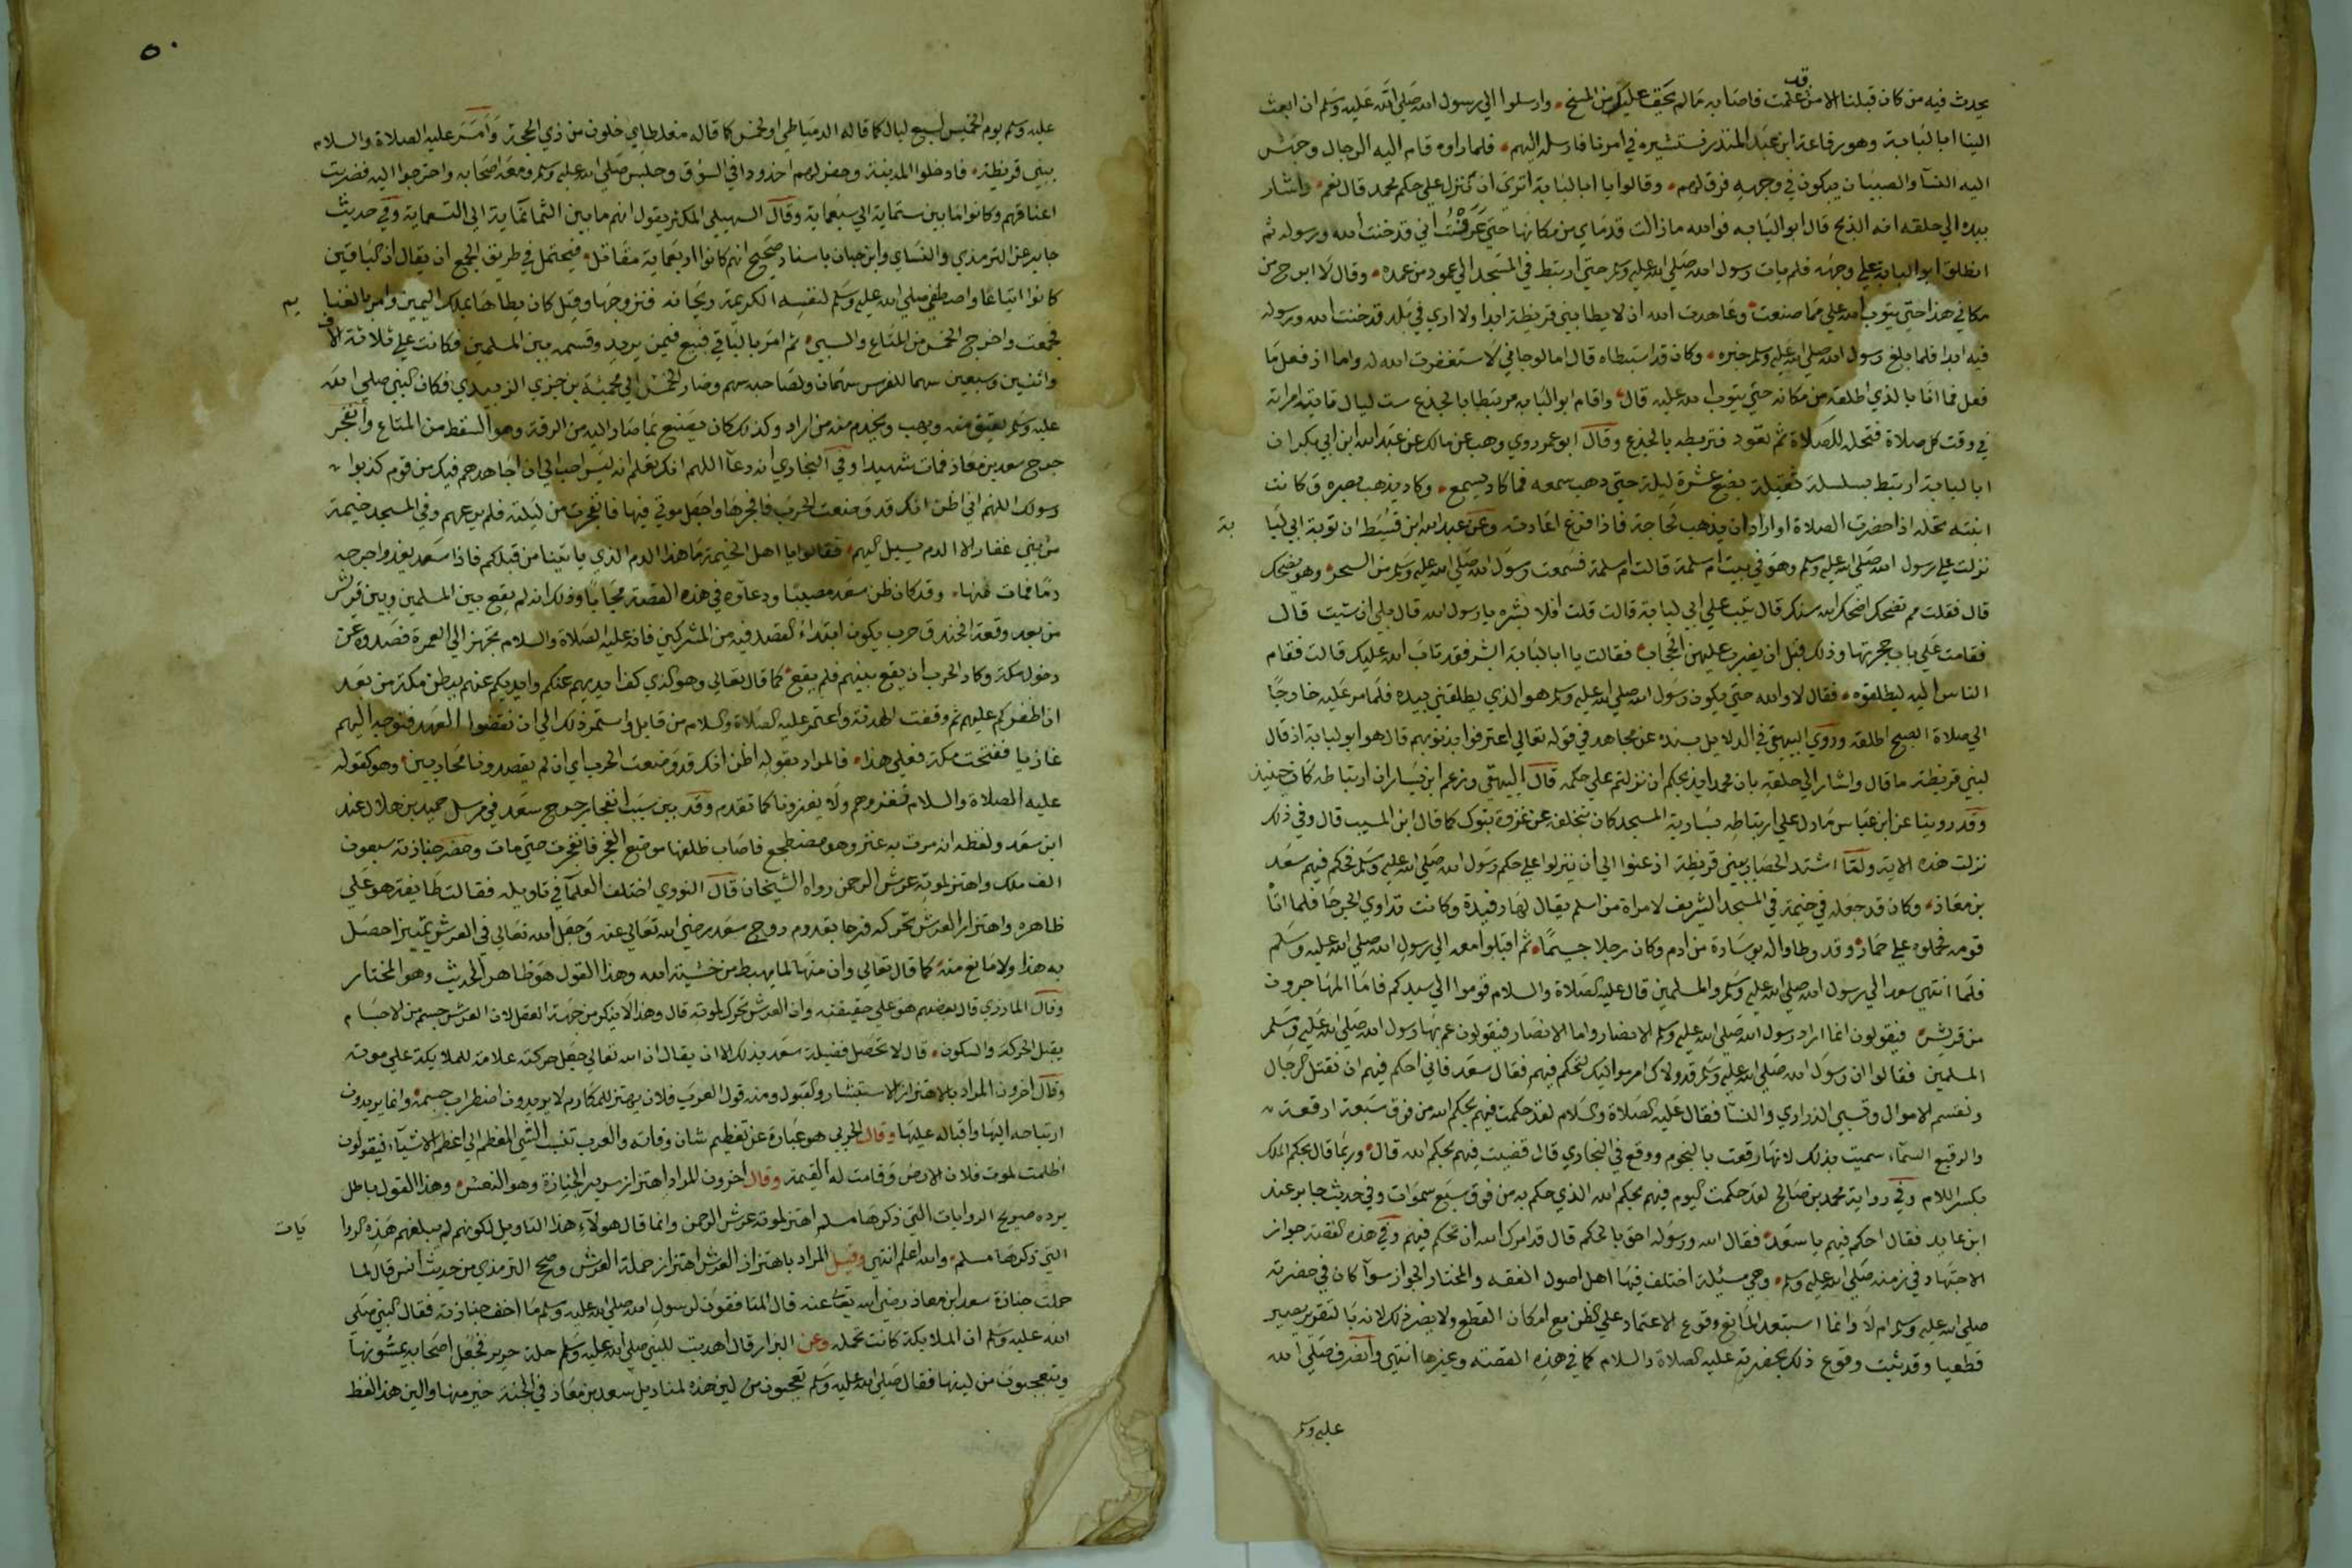 يحدث فيه من كان قبلنا الا من قد علمت فاصابه ما لم يخف عليك من المسخ وارسلوا الي رسول الله صلي الله عليه وسلم ان ابعث
الينا ابا لبابة وهو رفاعة ابن عبد المنذر نستشيره في امرنا فارسله اليهم فلما راوه قام اليه الرجال وجهش
اليه النسآ والصبيان يبكون في وجهه فرق لهم وقالوا يا ابا لبابة اتري ان ننزل علي حكم محمد قال نعم واشار
بيده الي حلقه انه الذبح قال ابو لبابه فوالله ما زالت قدماي من مكانهما حتي عرفت اني قد خنت الله ورسوله ثم
انطلق ابو لبابة علي وجهه فلم يات رسول الله صلي الله عليه وسلم حتي ارتبط في المسجد الي عمود من عمده وقال لا ابرح من
مكاني هذا حتي يتوب الله علي مما صنعت وعاهدت الله ان لا يطا بني قريظة ابدا ولا اري في بلد قد خنت الله ورسوله
فيه ابدا فلما بلغ رسول الله صلي الله عليه وسلم خبره وكان قد استبطاه قال اما لو جاني لاستغفرت الله له واما اذ فعل ما
فعل فما انا بالذي اطلقه من مكانه حتي يتوب الله عليه قال واقام ابو لبابه مرتبطا بالجذع ست ليال تاتيه امراته
في وقت كل صلاة فتحله للصلاة ثم تعود فتربطه بالجذع وقال ابو عمر روي وهب عن مالك عن عبد الله ابن ابي بكر ان
ابا لبابة ارتبط بسلسلة ثقيلة بضع عشرة ليلة حتي ذهب سمعه فما كاد يسمع وكاد يذهب بصره وكانت
ابنته تحله اذا حضرت الصلاة او اراد ان يذهب لحاجة فاذا فرغ اعادته وعن عبد الله ابن قسيط ان توبة ابي لبا بة
نزلت علي رسول الله صلي الله عليه وسلم وهو في بيت ام سلمة قالت ام سلمة فسمعت رسول الله صلي الله عليه وسلم من السحر وهو يضحك
قال فقلت مم تضحك اضحك الله سنك قال تيب علي ابي لبابة قالت قلت افلا ابشره يا رسول الله قال بلي ان شيت قال
فقامت علي باب حجرتها وذلك قبل ان يضرب عليهن الحجاب فقالت يا ابا لبابة ابشر فقد تاب الله عليك قالت فقام
الناس اليه ليطلقوه فقال لا والله حتي يكون رسول الله صلي الله عليه وسلم هو الذي يطلقني بيده فلما مر عليه خارجا
الي صلاة الصبح اطلقه وروي البيهقي في الدلايل بسنده عن مجاهد في قوله تعالي اعترفوا بذنوبهم قال هو ابو لبابة اذ قال
لبني قريظة ما قال واشار الي حلقه بان محمدا يذبحكم ان نزلتم علي حكمه قال البيهقي وزعم ابن يسار ان ارتباطه كان حينيذ
وقد روينا عن ابن عباس ما دل علي ارتباطه بسارية المسجد كان بتخلفه عن غزوة تبوك كما قال ابن المسيب قال وفي ذلك
نزلت هذه الاية ولما اشتد الحصار ببني قريظة اذعنوا الي ان ينزلوا علي حكم رسول الله صلي الله عليه وسلم فحكم فيهم سعد
بن معاذ وكان قد جعله في خيمة في المسجد الشريف لامراة من اسلم يقال لها رفيدة وكانت تداوي الجرحا فلما اتا
قومه فحملوه علي حمار وقد وطاوا له بوسادة من ادم وكان رجلا جسيما ثم اقبلوا معه الي رسول الله صلي الله عليه وسلم
فلما انتهي سعد الي رسول الله صلي الله عليه وسلم والمسلمين قال عليه الصلاة والسلام قوموا الي سيدكم فاما المهاجرون
من قريش فيقولون انما اراد رسول الله صلي الله عليه وسلم الانصار واما الانصار فيقولون عم بها رسول الله صلي الله عليه وسلم
المسلمين فقالوا ان رسول الله صلي الله عليه وسلم قد ولاك امر مواليك لتحكم فيهم فقال سعد فاني احكم فيهم ان نقتل الرجال
ونقسم الاموال ونسبي الذراري والنسآ فقال عليه الصلاة والسلام لقد حكمت فيهم بحكم الله من فوق سبعة ارقعة
والرقيع السمآء سميت بذلك لانها رقعت بالنجوم ووقع في البخاري قال قضيت فيهم بحكم الله قال وربما قال بحكم الملك
بكسر اللام وفي رواية محمد بن صالح لقد حكمت اليوم فيهم بحكم الله الذي حكم به من فوق سبع سموات وفي حديث جابر عند
ابن عايد فقال احكم فيهم يا سعد فقال الله ورسوله احق بالحكم قال قد امرك الله ان تحكم فيهم وفي هذه القصة جواز
الاجتهاد في زمنه صلي الله عليه وسلم وهي مسئلة اختلف فيها اهل اصول الفقه والمختار الجواز سوآ كان في حضرته
صلي الله عليه وسلم ام لا وانما استبعد المانع وقوع الاعتماد علي الظن مع امكان القطع ولا يضر ذلك لانه بالتقرير يصير
قطعيا وقد ثبت وقوع ذلك بحضرته عليه الصلاة والسلام كما في هذه القصة وغيرها انتهي وانصرف صلي الله
عليه وسلم
٥٠
عليه وسلم يوم الخميس لسبع ليال كما قاله الدمياطي او لخمس كما قاله مغلطاي خلون من ذي الحجة وامر عليه الصلاة والسلام
ببني قريظة فادخلوا المدينة وحفر لهم اخدودا في السوق وجلس صلي الله عليه وسلم ومعه اصحابه واخرجوا اليه فضربت
اعناقهم وكانوا ما بين ستماية الي سبعماية وقال السهيلي المكثر يقول انهم ما بين الثمانماية الي التسعماية وفي حديث
جابر عند الترمذي والنساي وابن حبان باسناد صحيح انهم كانوا اربعماية مقاتل فيحتمل في طريق الجمع ان يقال ان الباقين
كانوا اتباعا واصطفي صلي الله عليه وسلم لنفسه الكريمة ريحانه فتزوجها وقيل كان يطاها بملك اليمين وامر بالغنا يم
فجمعت واخرج الخمس من المتاع والسبي ثم امر بالباقي فبيع فيمن يريد وقسمه بين المسلمين فكانت علي ثلاثة الاف
واثنين وسبعين سهما للفرس سهمان ولصاحبه سهم وصار الخمس الي محمية بن جزي الزبيدي فكان النبي صلي الله
عليه وسلم يعتق منه ويهب ويخدم منه من اراد وكذلك كان يصنع بما صار اليه من الرقة وهو السقط من المتاع وانفجر
جرح سعد بن معاذ فمات شهيدا وفي البخاري انه دعآ اللهم انك تعلم انه ليس احب الي ان اجاهدهم فيك من قوم كذبوا
رسولك اللهم اني اظن انك قد وضعت الحرب فافجرها واجعل موتي فيها فانفجرت من ليلته فلم يرعهم وفي المسجد خيمة
من بني غفار الا الدم يسيل اليهم فقالوا يا اهل الخيمة ما هذا الدم الذي ياتينا من قبلكم فاذا سعد يغذوا جرحه
دما فمات منها وقد كان ظن سعد مصيبا ودعاوه في هذه القصة مجابا وذلك انه لم يقع بين المسلمين وبين قريش
من بعد وقعة الخندق حرب يكون ابتداء القصد فيه من المشركين فانه عليه الصلاة والسلام تجهز الي العمرة فصدوه عن
دخول مكة وكاد الحرب ان يقع بينهم فلم يقع كما قال تعالي وهو الذي كف ايديهم عنكم وايديكم عنهم ببطن مكة من بعد
ان اظفركم عليهم ثم وقعت الهدنة واعتمر عليه الصلاة والسلام من قابل واستمر ذلك الي ان نقضوا العهد فتوجه اليهم
غازيا ففتحت مكة فعلي هذا فالمراد بقوله اظن انك قد وضعت الحرب اي ان لم يقصدونا محاربين وهو كقوله
عليه الصلاة والسلام نغزوهم ولا يغزونا كما تقدم وقد بين سبب انفجار جرح سعد في مرسل حميد بن هلال عند
ابن سعد ولفظه انه مرت به عنز وهو مضطجع فاصاب ظلفها موضع الفجر فانفجرت حتي مات وحضر جنازته سبعون
الف ملك واهتز لموته عرش الرحمن رواه الشيخان قال النووي اختلف العلمآ في تاويله فقالت طايفة هو علي
ظاهره واهتزاز العرش تحركه فرحا بقدوم روح سعد رضي الله تعالي عنه وجعل الله تعالي في العرش تمييزا حصل
به هذا ولا مانع منه كما قال تعالي وان منها لما يهبط من خشية الله وهذا القول هو ظاهر الحديث وهو المختار
وقال المازري قال بعضهم هو علي حقيقته وان العرش تحرك لموته قال وهذا لا ينكر من جهة العقل لان العرش جسم من الاجسام
يقبل الحركة والسكون قال لا تحصل فضيلة سعد بذلك الا ان يقال ان الله تعالي جعل حركته علامة للملايكة علي موته
وقال اخرون المراد بالاهتزاز الاستبشار والقبول ومنه قول العرب فلان يهتز للمكارم لا يريدون اضطراب جسمه وانما يريدون
ارتياحه اليها واقباله عليها وقال الحربي هو عبارة عن تعظيم شان وفاته والعرب تنسب الشي المعظم الي اعظم الاشيآء فيقولون
اظلمت لموت فلان الارض وقامت له القيمة وقال اخرون المراد اهتزاز سرير الجنازة وهو النعش وهذا القول باطل
يرده صريح الروايات التي ذكرها مسلم اهتز لموته عرش الرحمن وانما قال هولآء هذا التاويل لكونهم لم يبلغهم هذه الروا يات
التي ذكرها مسلم والله اعلم انتهي وقيل المراد باهتزاز العرش اهتزاز حملة العرش وصحح الترمذي من حديث انس قال لما
حملت جنازة سعد ابن معاذ رضي الله تعالي عنه قال المنافقون لرسول الله صلي الله عليه وسلم ما اخف جنازته فقال النبي صلي
الله عليه وسلم ان الملايكة كانت تحمله وعن البزار قال اهديت للنبي صلي الله عليه وسلم حلة حرير فجعل اصحابه يمسونها
ويتعجبون من لينها فقال صلي الله عليه وسلم تعجبون من لين هذه لمناديل سعد بن معاذ في الجنة خير منها والين هذا لفظ